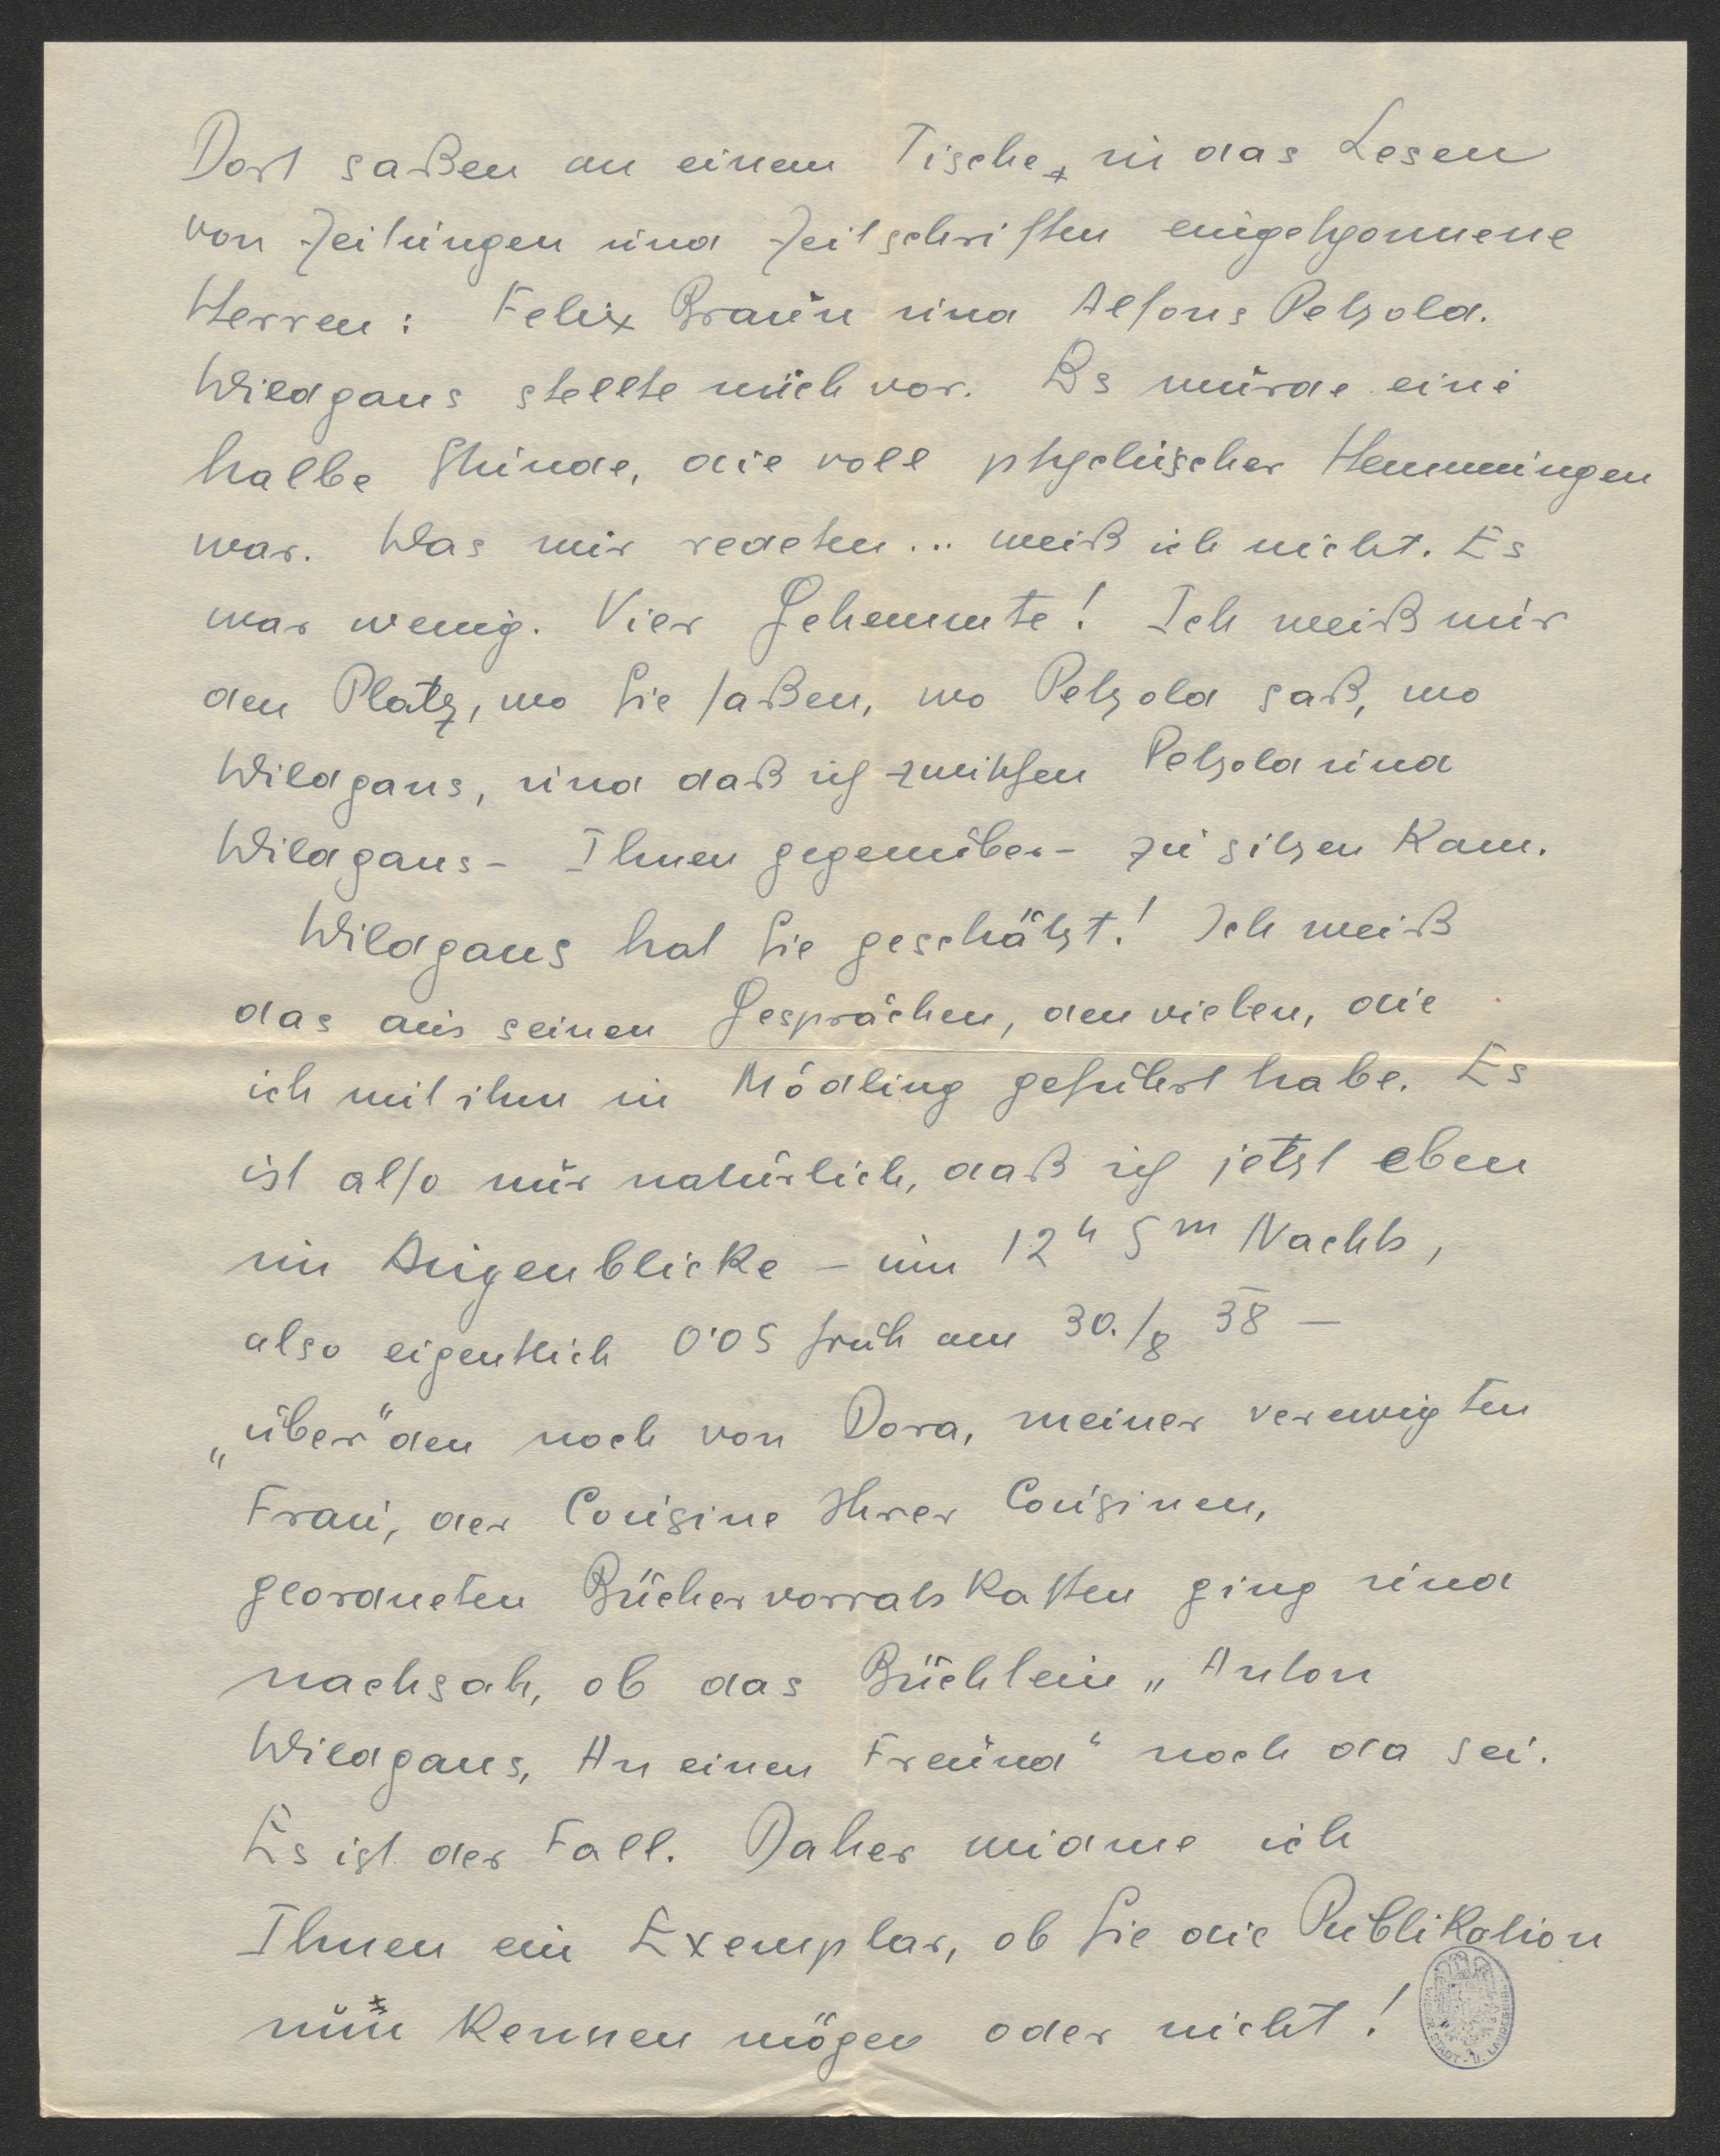 Dort saßen an einem Tische, in das Lesen
von Zeitungen und Zeitschriften eingesponnene
Herren: Felix Braun und Alfons Petzold.
Wildgans stellte mich vor. Es wurde eine
halbe Stunde, die voll psychischer Hemmungen
war. Was wir redeten... weiß ich nicht. Es
war wenig. Vier Gehemmte! Ich weiß nur
den Platz, wo Sie saßen, wo Petzold saß, wo
Wildgans, und daß ich zwischen Petzold und
Wildgans - Ihnen gegenüber - zu sitzen kam.
Wildgans hat Sie geschätzt! Ich weiß
das aus seinen Gesprächen, den vielen, die
ich mit ihm in Mödling geführt habe. Es
ist also nur natürlich, daß ich jetzt eben
im Augenblicke - um 12h 5m Nachts,
also eigentlich 0'05 früh am 30./8 38 -
„über" den noch von Dora, meiner verewigten
Frau, der Cousine Ihrer Cousinen,
geordneten Büchervorratskasten ging und
nachsah, ob das Büchlein „Anton
Wildgans, An einen Freund" noch da sei.
Es ist der Fall. Daher widme ich
Ihnen ein Exemplar, ob Sie die Publikation
nun kennen mögen oder nicht!